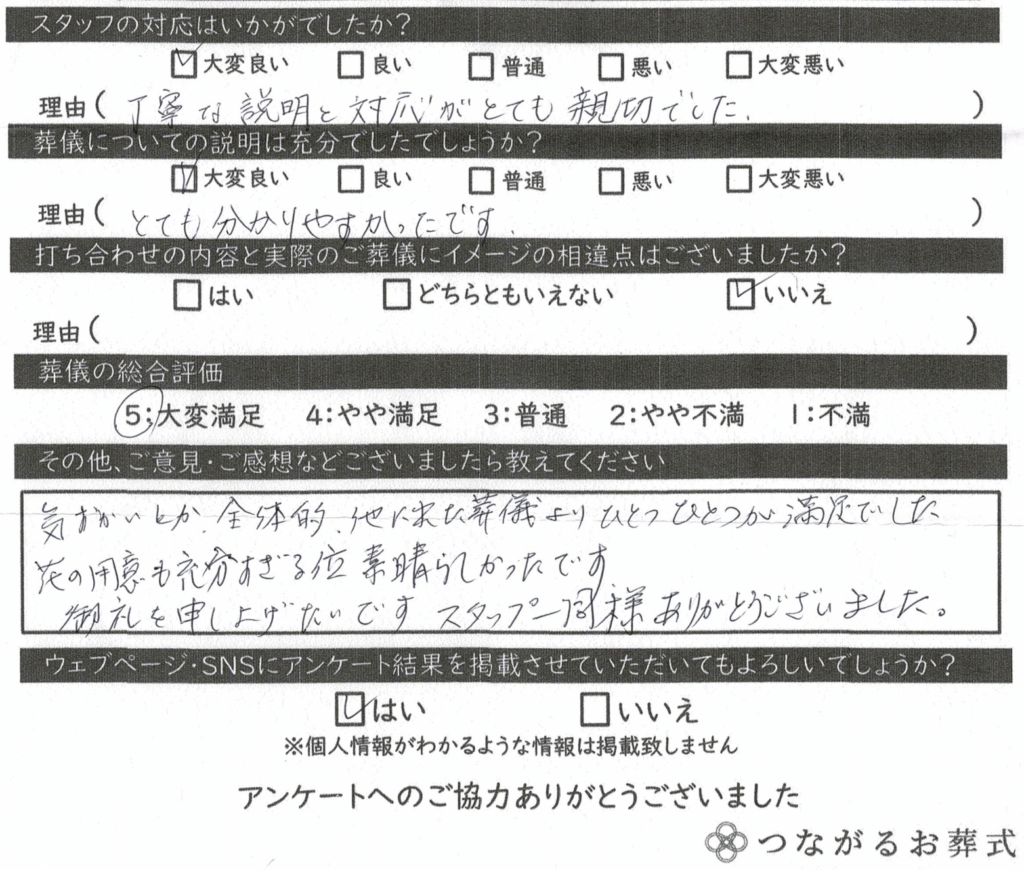 スタッフの対応はいかがでしたか?
☑大変良い □良い □普通 □悪い □大変悪い
理由( 丁寧な説明と対応がとても親切でした. )
葬儀についての説明は充分でしたでしょうか?
☑大変良い □良い □普通 □悪い □大変悪い
理由( とても分かりやすかったです. )
打ち合わせの内容と実際のご葬儀にイメージの相違点はございましたか?
□はい □どちらともいえない ☑いいえ
理由( )
葬儀の総合評価
5:大変満足 4:やや満足 3:普通 2:やや不満 1:不満
その他、ご意見・ご感想などございましたら教えてください
気ずかいとか、全体的、他に来た葬儀よりひとつひとつが満足でした
花の用意も充分すぎる位素晴らしかったです
御礼を申し上げたいです スタッフ一同様ありがとうございました。
ウェブページ・SNSにアンケート結果を掲載させていただいてもよろしいでしょうか?
☑はい □いいえ
※個人情報がわかるような情報は掲載致しません
アンケートへのご協力ありがとうございました
つながるお葬式